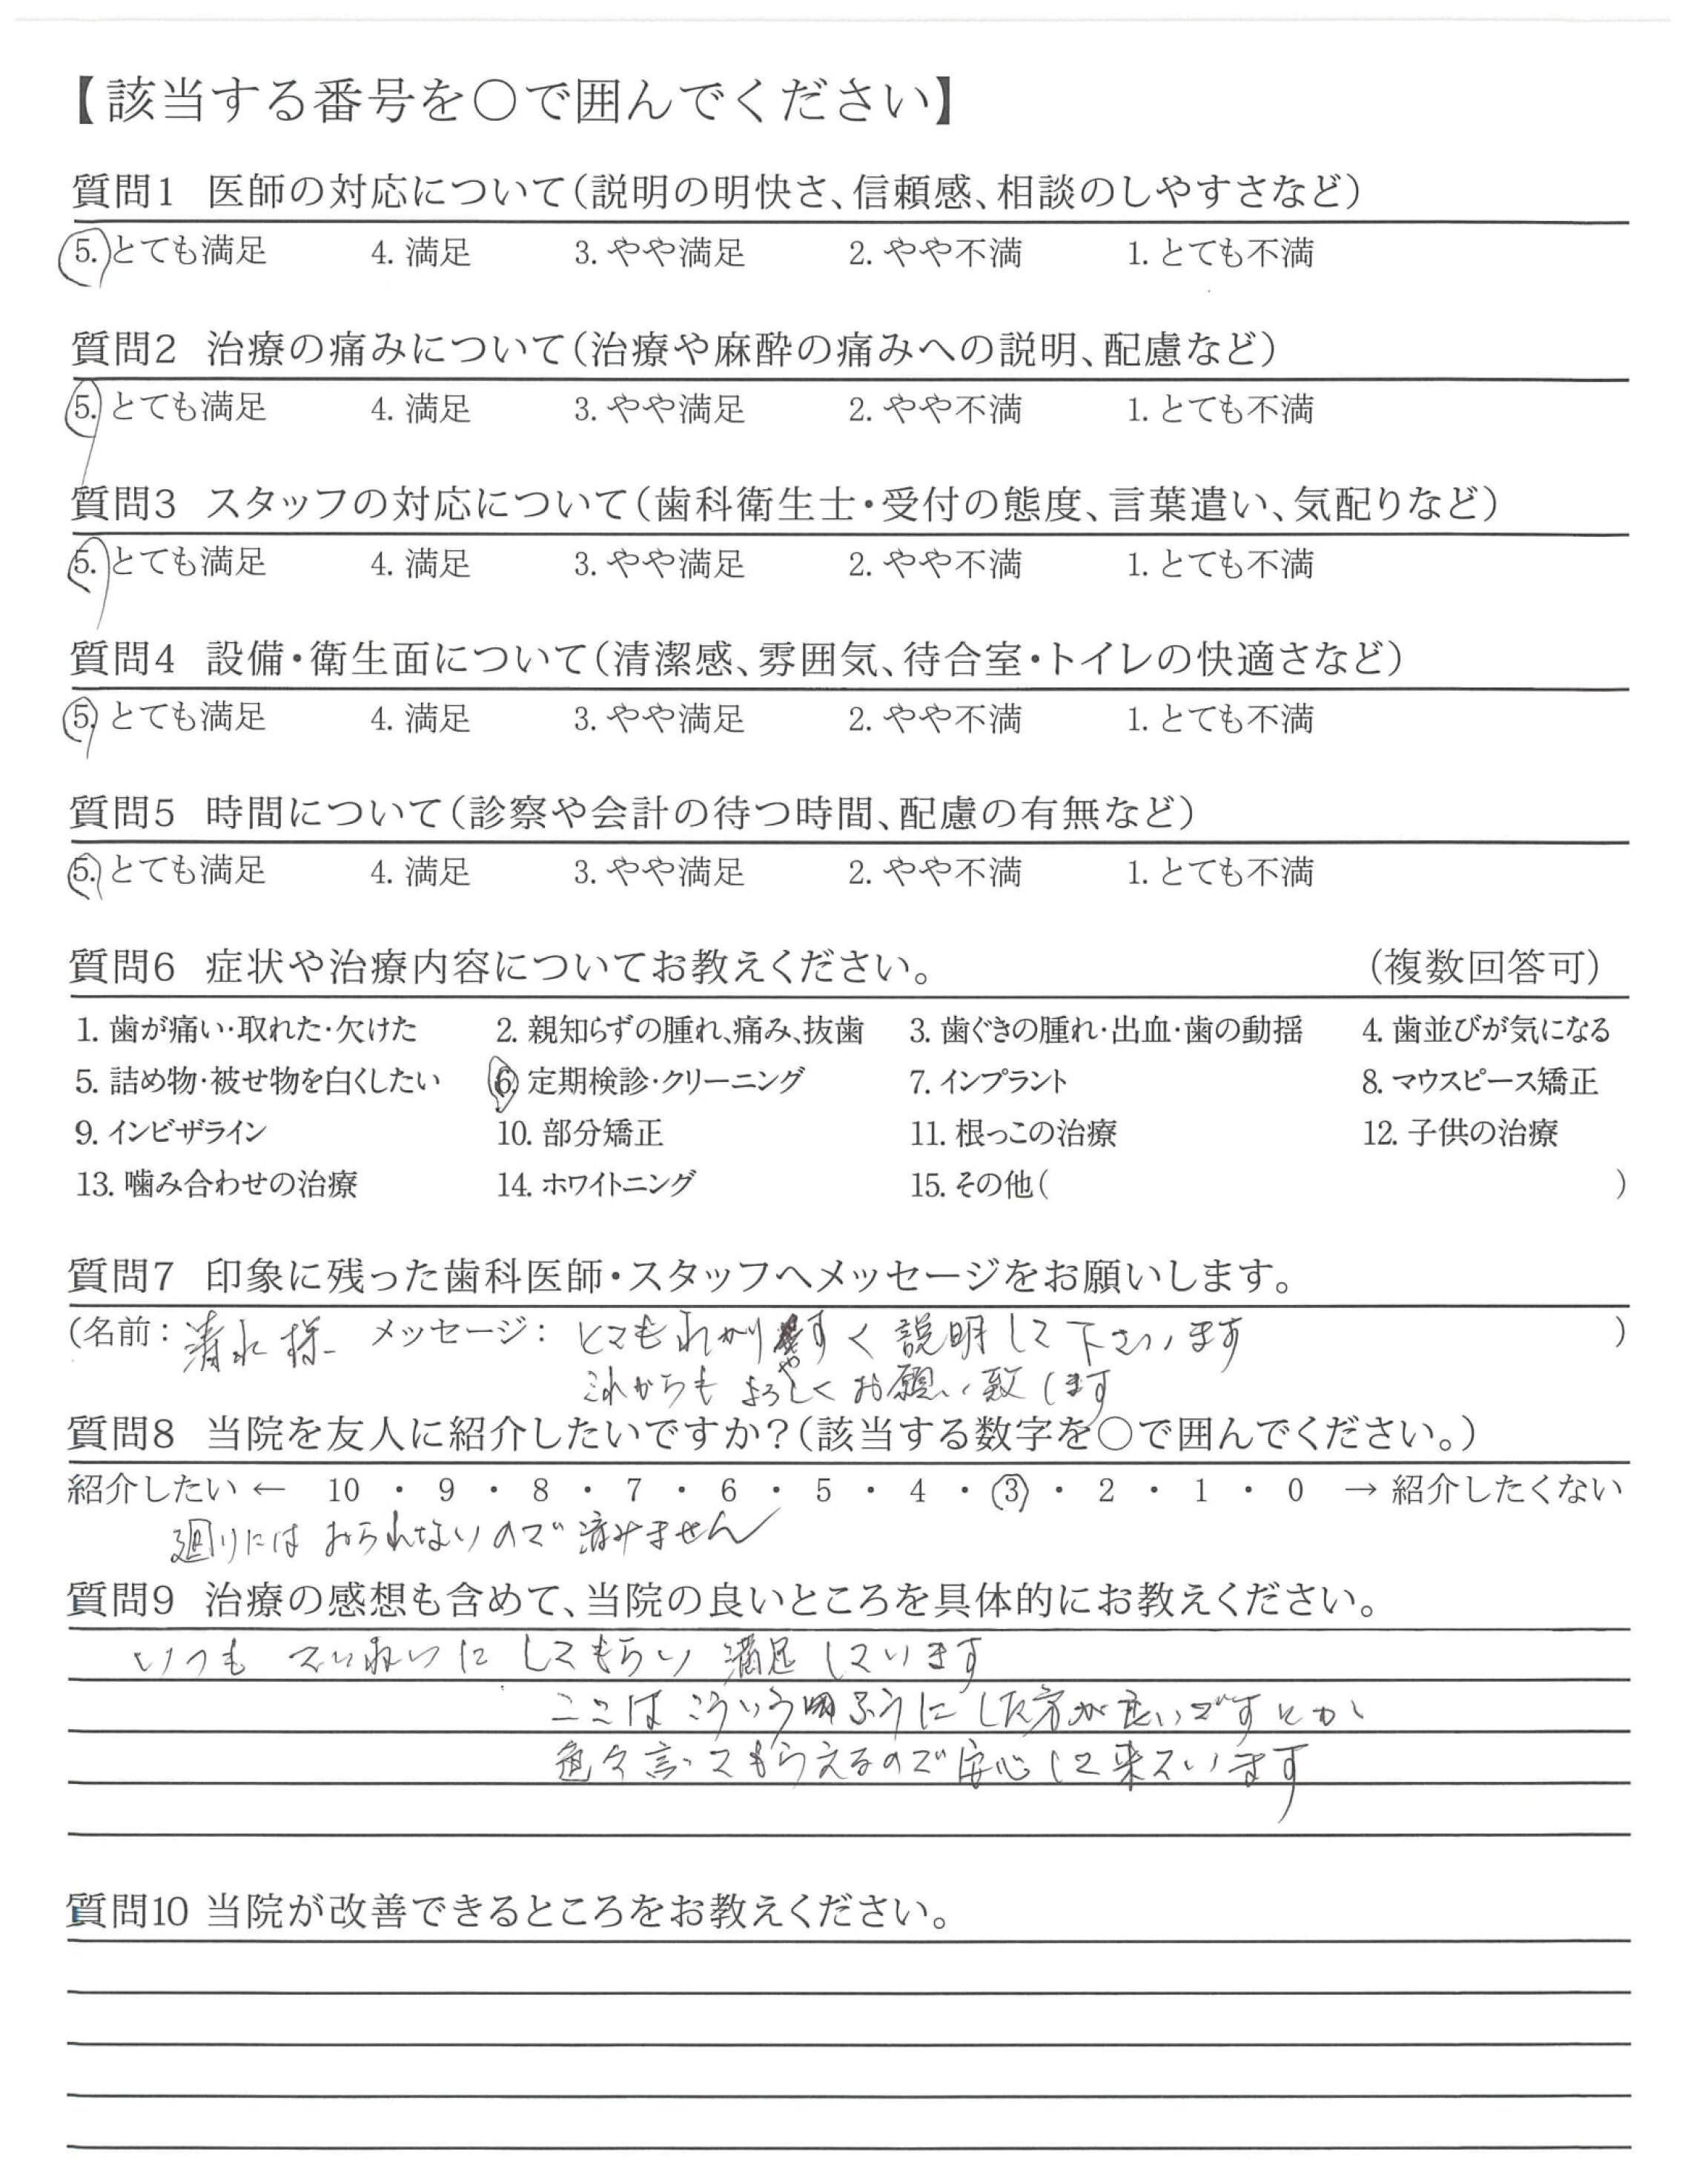 【該当する番号を〇で囲んでください】
質問1 医師の対応について(説明の明快さ、信頼感、相談のしやすさなど)
5. とても満足 4. 満足 3. やや満足 2. やや不満 1. とても不満
質問2 治療の痛みについて(治療や麻酔の痛みへの説明、配慮など)
5. とても満足 4. 満足 3. やや満足 2. やや不満 1. とても不満
質問3 スタッフの対応について(歯科衛生士・受付の態度、言葉遣い、気配りなど)
5. とても満足 4. 満足 3. やや満足 2. やや不満 1. とても不満
質問4 設備・衛生面について(清潔感、雰囲気、待合室・トイレの快適さなど)
5. とても満足 4. 満足 3. やや満足 2. やや不満 1. とても不満
質問5 時間について(診察や会計の待つ時間、配慮の有無など)
5. とても満足 4. 満足 3. やや満足 2. やや不満 1. とても不満
質問6 症状や治療内容についてお教えください。 (複数回答可)
1. 歯が痛い・取れた・欠けた 2. 親知らずの腫れ、痛み、抜歯 3. 歯ぐきの腫れ・出血・歯の動揺 4. 歯並びが気になる
5. 詰め物・被せ物を白くしたい 6. 定期検診・クリーニング 7. インプラント 8. マウスピース矯正
9. インビザライン 10. 部分矯正 11. 根っこの治療 12. 子供の治療
13. 噛み合わせの治療 14. ホワイトニング 15. その他( )
質問7 印象に残った歯科医師・スタッフへメッセージをお願いします。
(名前: 清水様 メッセージ: とてもわかりやすく説明して下さいます )
これからもよろしくお願い致します
質問8 当院を友人に紹介したいですか?(該当する数字を〇で囲んでください。)
紹介したい ← 10 ・ 9 ・ 8 ・ 7 ・ 6 ・ 5 ・ 4 ・ 3 ・ 2 ・ 1 ・ 0 → 紹介したくない
廻りにはおられないので済みません
質問9 治療の感想も含めて、当院の良いところを具体的にお教えください。
いつもていねいにしてもらい満足しています
ここはこういうふうにした方が良いですとか
色々言ってもらえるので安心して来ています
質問10 当院が改善できるところをお教えください。